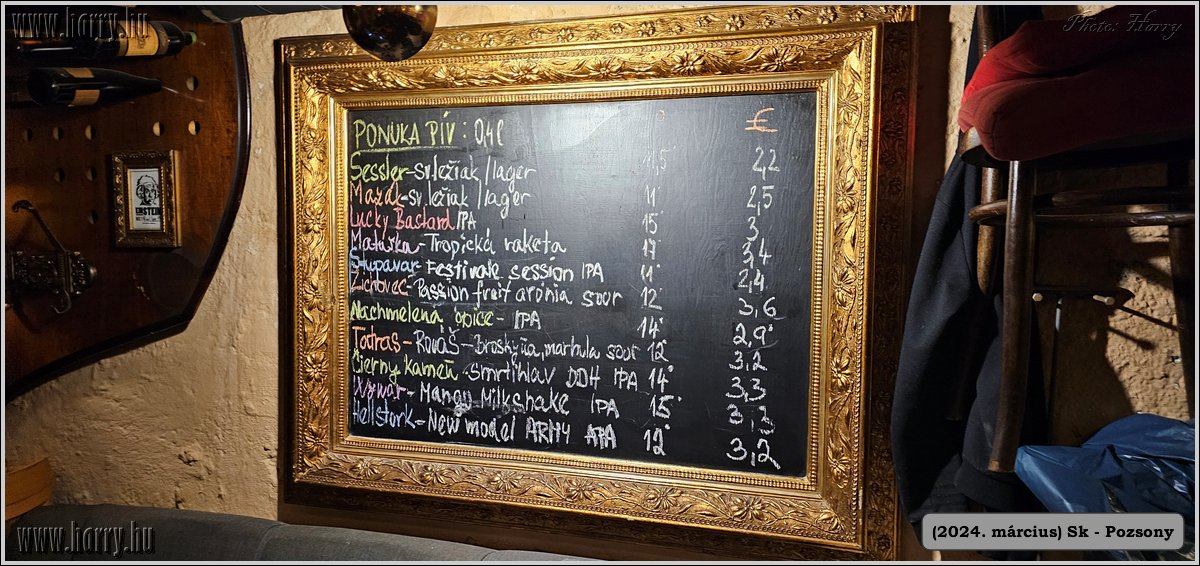 www.harry.hu
Photo: Harry
PONUKA PÍV: 0,4l ° €
Sessler-sv.ležiak/lager 11,5 2,2
Mazák-sv.ležiak/lager 11 2,5
Lucky Bastard IPA 15° 3
Matuška-Tropická raketa 17° 3,4
Stupavar-Festivale session IPA 11° 2,4
Zichovec-Passion fruit arónia sour 12° 3,6
Nachmelená opice- IPA 14° 2,9
Tatras-Rováš-broskyňa, marhuľa sour 12° 3,2
Čierny kameň-Smrtihlav DDH IPA 14° 3,3
Wywar-Mango Milkshake IPA 15° 3,3
Hellstork-New model ARMY APA 12° 3,2
EINSTEIN
www.harry.hu
(2024. március) Sk - Pozsony